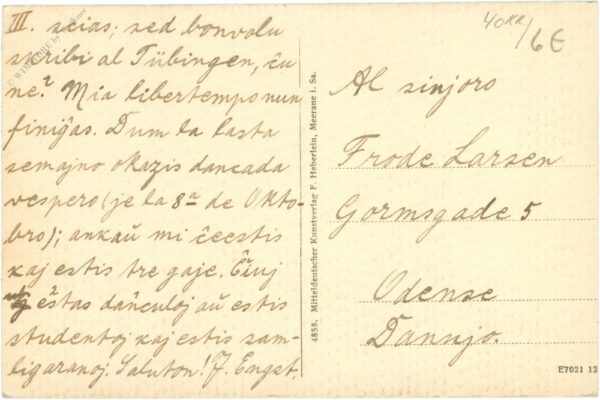 III. scias; sed bonvolu
skribi al Tübingen, ĉu
ne? Mia libertempo nun
finiĝas. Dum la lasta
semajno okazis dancada
vespero (je la 8a de Okto-
bro); ankaŭ mi ĉeestis
kaj estis tre gaje. Ĉiuj
ĉ̂estas danculoj aŭ estis
studentoj kaj estis sam-
ligaranoj. Saluton! J. Engst.
40KR/6€
Al sinjoro
Frode Larsen
Gormsgade 5
Odense
Dannjo.
4858. Mitteldeutscher Kunstverlag F. Heberlein, Meerane i. Sa.
E7021 13